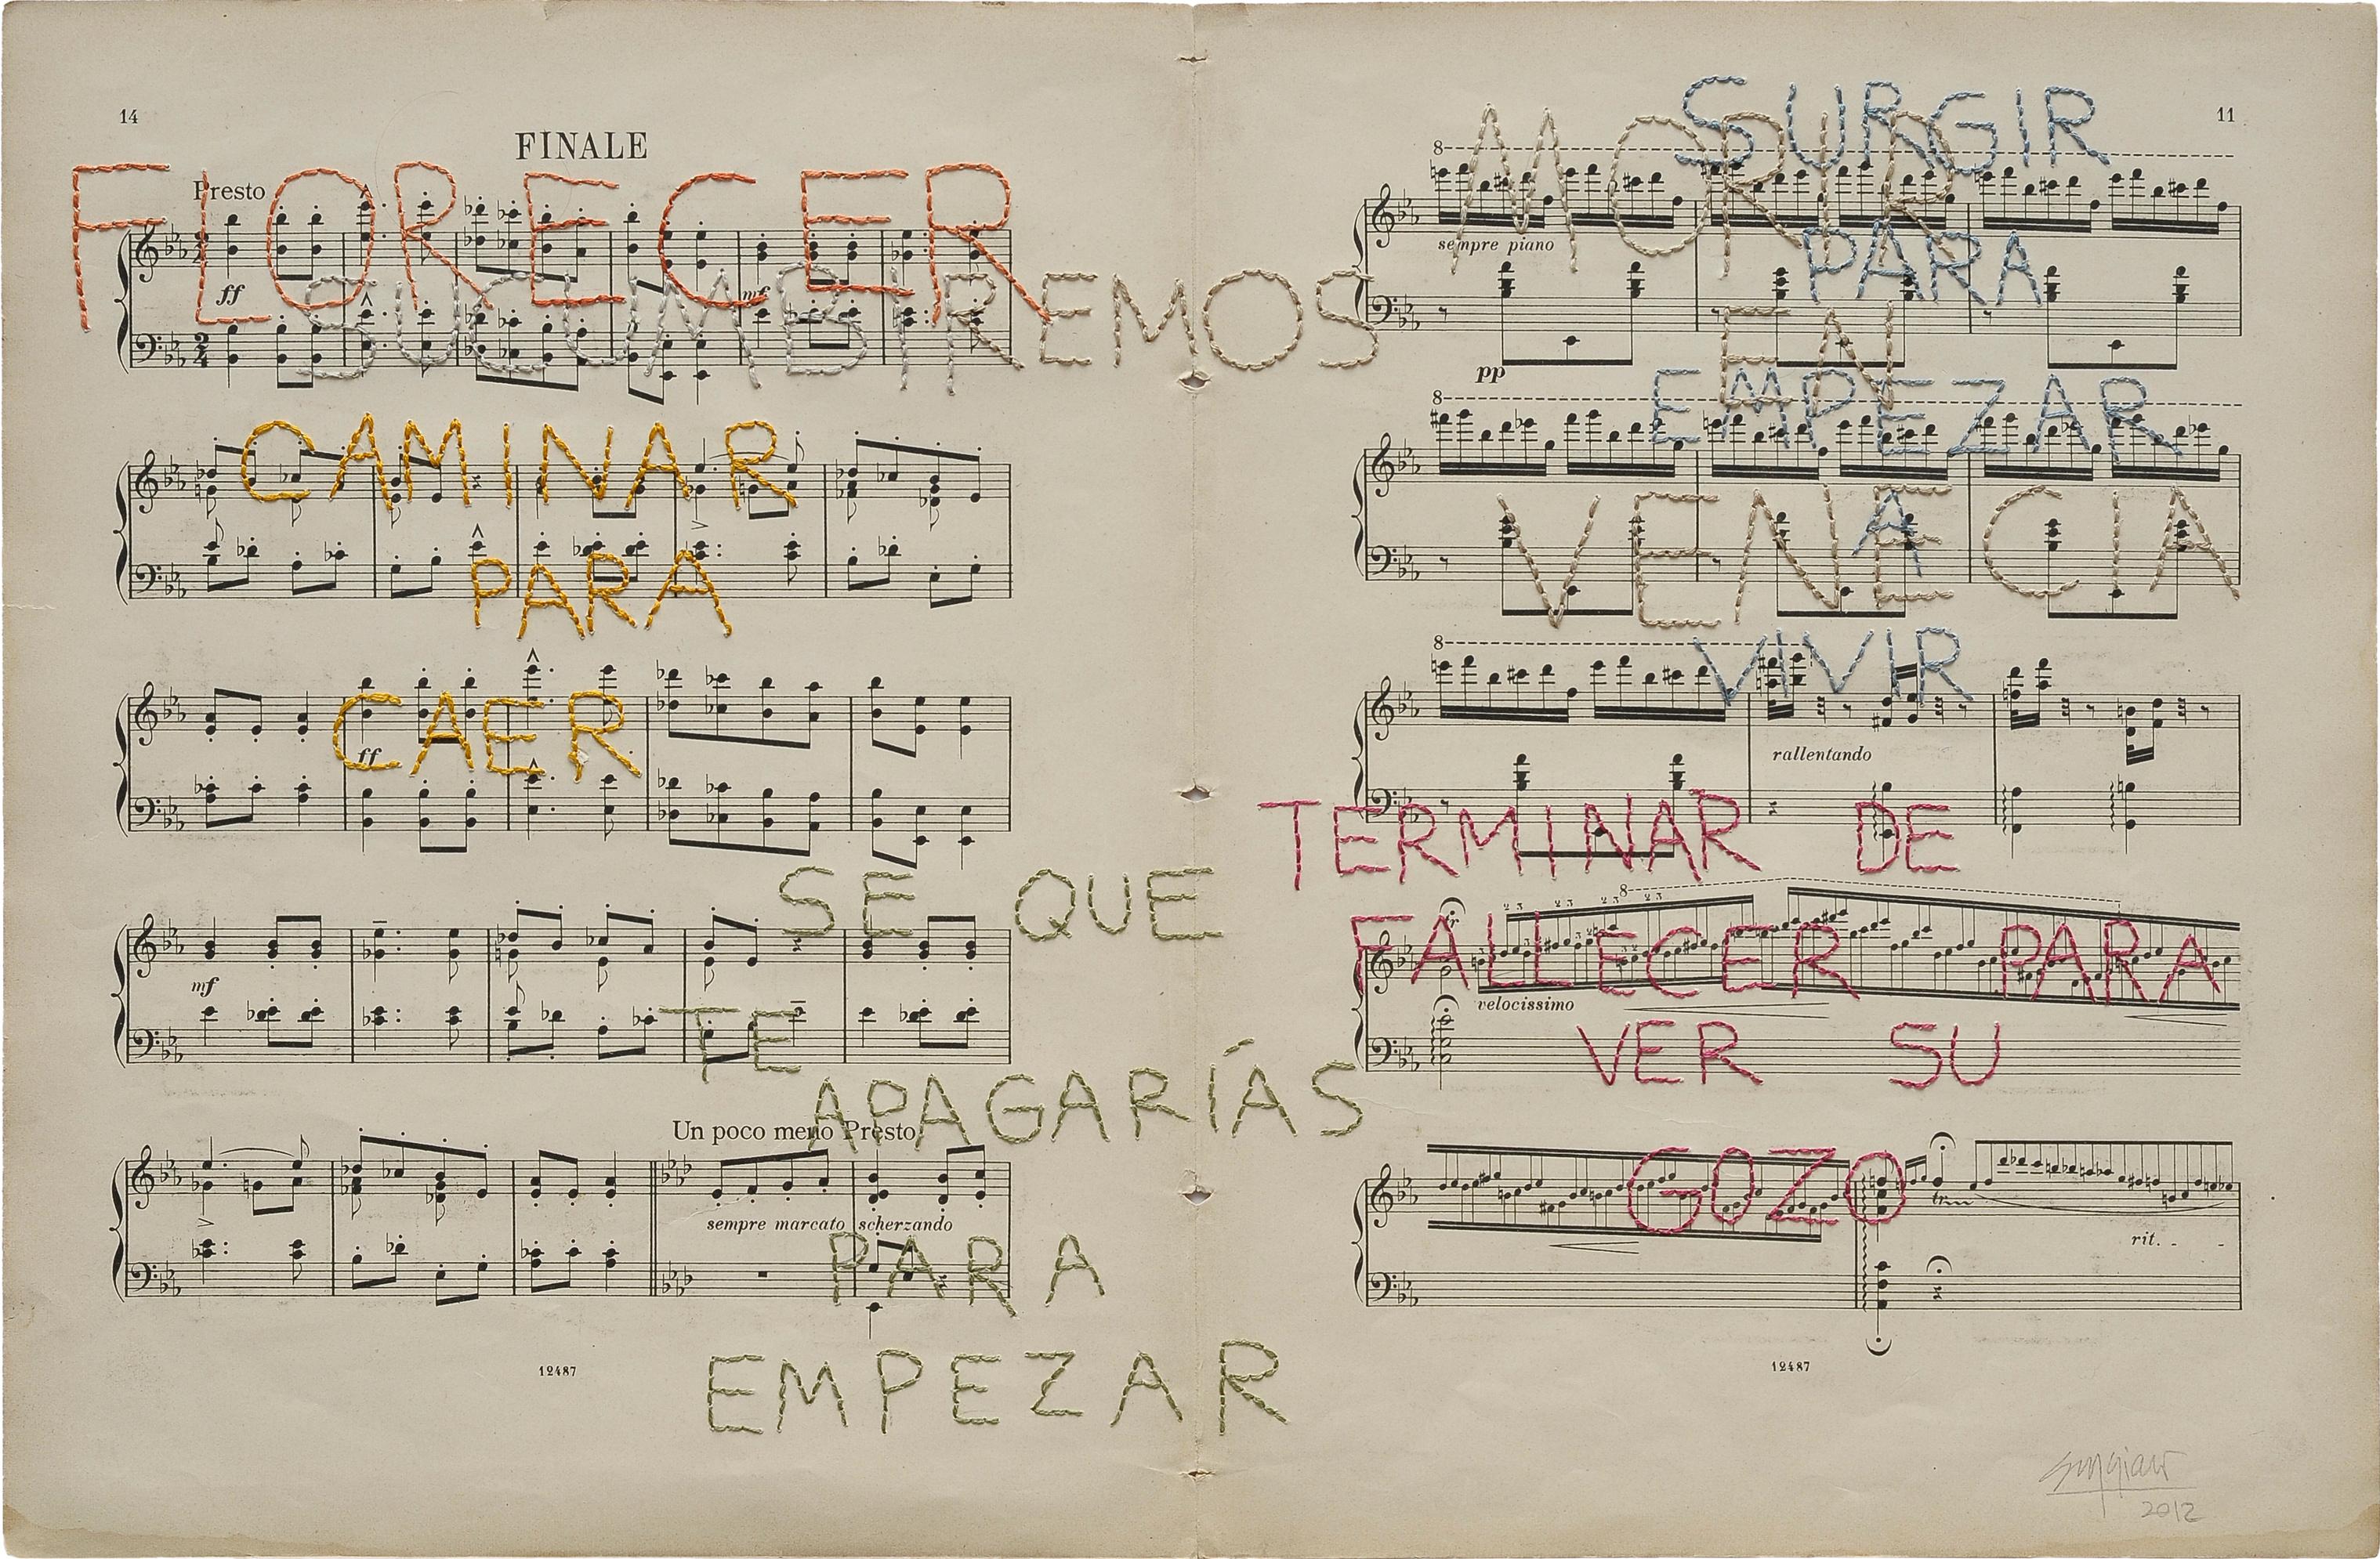 14
FINALE
Presto
FLORECER
ff
mf
SUCUMBIREMOS
CAMINAR
PARA
CAER
ff
SE QUE
mf
TE
APAGARÍAS
Un poco meno Presto
sempre marcato scherzando
PARA
12487
EMPEZAR
11
SURGIR
8
MORIR
sempre piano
PARA
EN
pp
EMPEZAR
8
VENECIA
A
8
VIVIR
rallentando
TERMINAR DE
8
2 3 2 3 2 3 2 3
tr
FALLECER PARA
velocissimo
VER SU
GOZO
tr
rit.
12487
2012